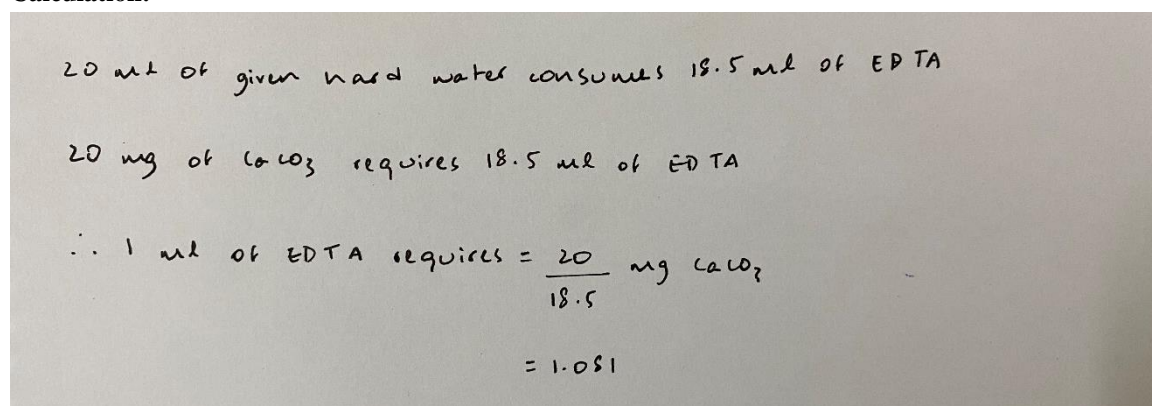 20 ml of given hard water consumes 18.5 ml of EDTA
20 mg of CaCO3 requires 18.5 ml of EDTA
∴ 1 ml of EDTA requires = 20/18.5 mg CaCO3
= 1.081